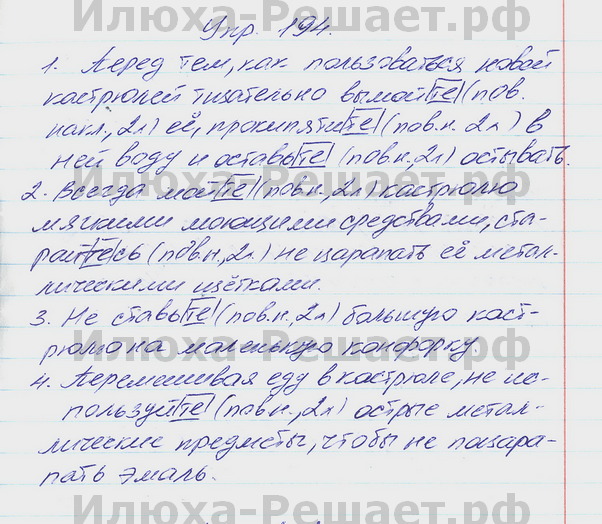 Илюха-Решает.рф
Упр. 194.
1. Перед тем, как пользоваться новой
кастрюлей тщательно вымойте (пов.
накл., 2л) её, прокипятите (пов.н. 2л) в
ней воду и оставьте (пов.н, 2л) остывать.
Илюха-Решает.рф
2. Всегда мойте (пов.н, 2л) кастрюлю
мягкими моющими средствами, ста-
райтесь (пов.н, 2л.) не царапать её метал-
лическими щётками.
Илюха-Решает.рф
3. Не ставьте (пов.н, 2л) большую каст-
рюлю на маленькую конфорку.
Илюха-Решает.рф
4. Перемешивая еду в кастрюле, не ис-
пользуйте (пов.н., 2л) острые метал-
лические предметы, чтобы не поцара-
пать эмаль.
Илюха-Решает.рф